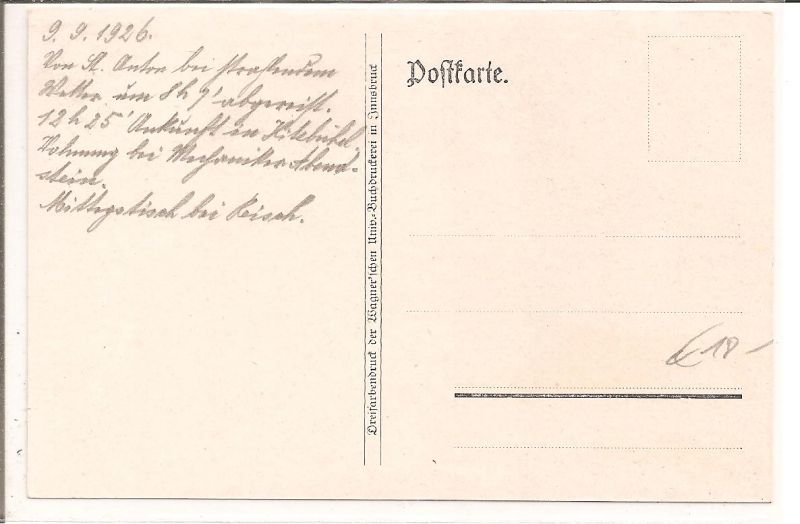 9. 9. 1926.
Von St. Anton bei strahlendem
Wetter um 8h 7' abgereist.
12h 25' Ankunft in Kitzbühel,
Wohnung bei Mechaniker Abend-
stein.
Mittagstisch bei Reisch.
Dreifarbendruck der Wagner'schen Univ.-Buchdruckerei in Innsbruck
Postkarte.
€ 18 –